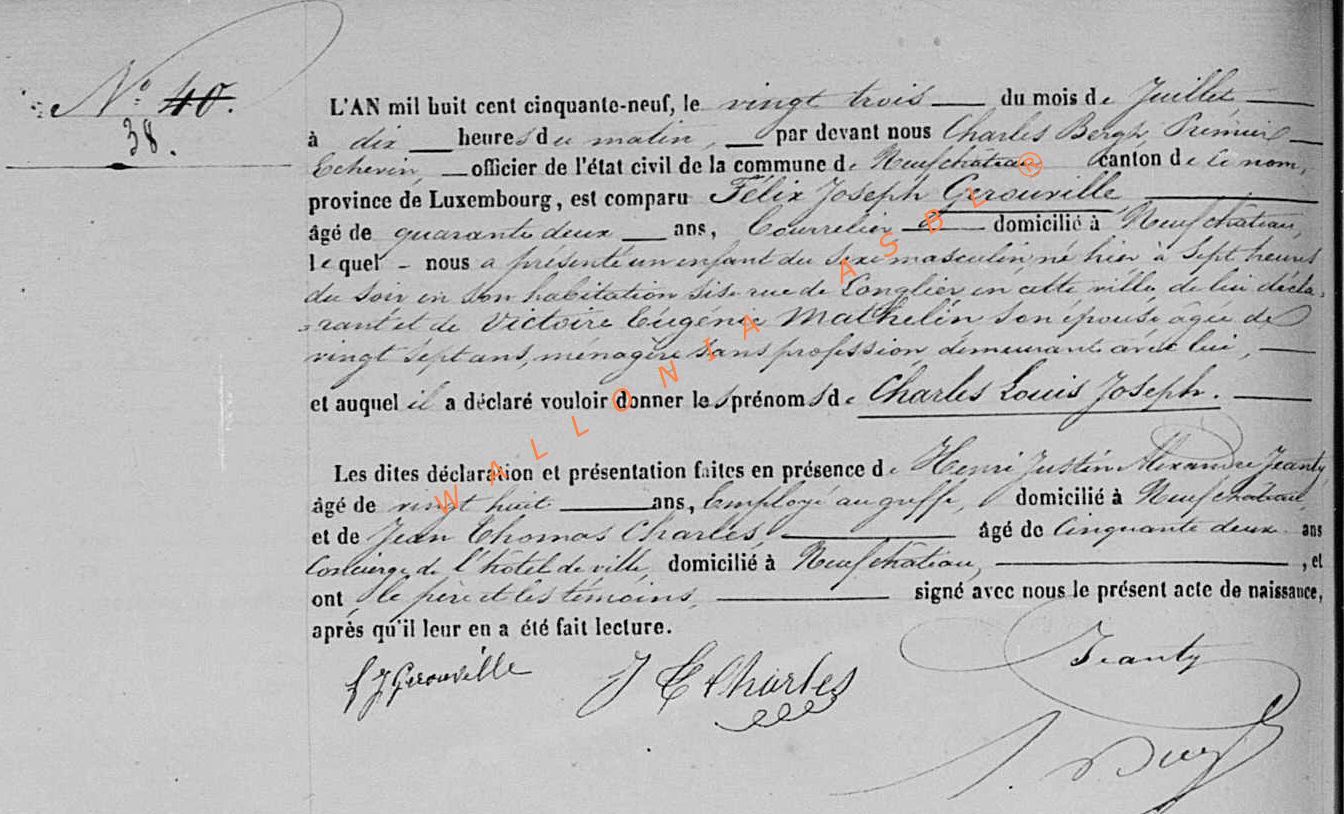 N° 40.
38.
L'AN mil huit cent cinquante-neuf, le vingt trois du mois de Juillet
à dix heures du matin, par devant nous Charles Bergh, Premier
Echevin, officier de l'état civil de la commune de Neufchâteau canton de ce nom,
province de Luxembourg, est comparu Félix Joseph Gerouville
âgé de quarante deux ans, Bourrelier domicilié à Neufchâteau,
lequel nous a présenté un enfant du sexe masculin, né hier à sept heures
du soir en son habitation sise rue de Longlier en cette ville, de lui décla-
-rant et de Victoire Eugénie Mathelin son épouse âgée de
vingt sept ans, ménagère sans profession demeurant avec lui,
et auquel il a déclaré vouloir donner les prénoms de Charles Louis Joseph.
Les dites déclaration et présentation faites en présence de Henri Justin Alexandre Jeanty
âgé de vingt huit ans, Employé au greffe, domicilié à Neufchâteau,
et de Jean Thomas Charles, âgé de Cinquante deux ans
Concierge de l'hôtel de ville, domicilié à Neufchâteau, , et
ont le père et les témoins, signé avec nous le présent acte de naissance,
après qu'il leur en a été fait lecture.
f J Gerouville J T Charles Jeanty
WALLONIA ASBL ®